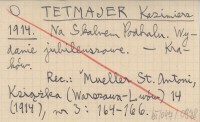 TETMAJER Kazimierz
1914. Na Skalnem Podhalu. Wy-
danie jubileuszowe. — Kra-
ków.
Rec.: Mueller St. Antoni,
Książka (Warszawa-Lwów) 14
(1914), nr 3: 164-166.